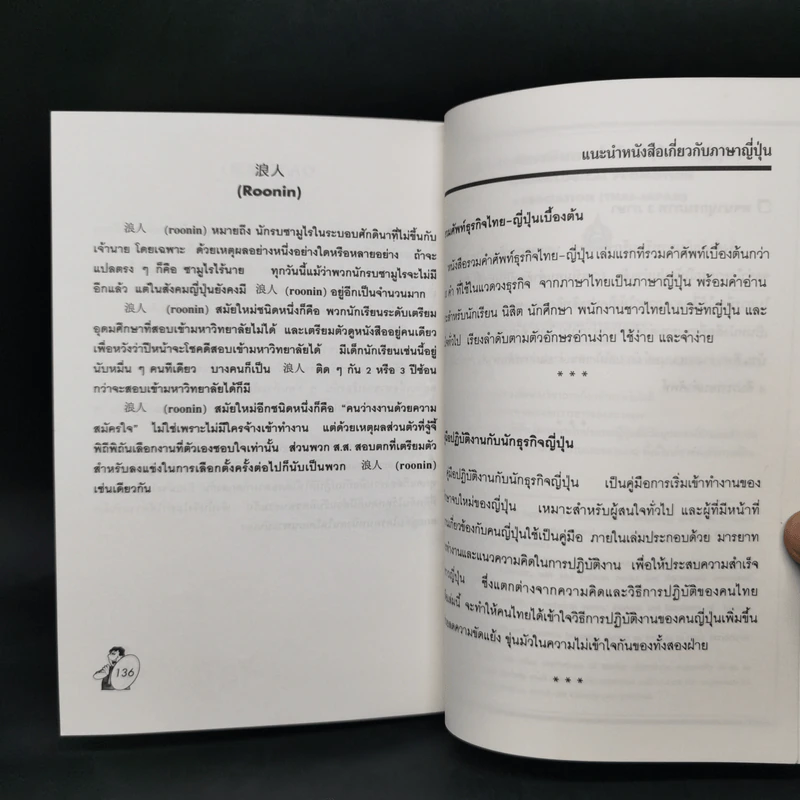 浪人
(Roonin)
浪人 (roonin) หมายถึง นักรบซามูไรในระบอบศักดินาที่ไม่ขึ้นกับ
เจ้านาย โดยเฉพาะ ด้วยเหตุผลอย่างหนึ่งอย่างใดหรือหลายอย่าง ถ้าจะ
แปลตรง ๆ ก็คือ ซามูไรไร้นาย ทุกวันนี้แม้ว่าพวกนักรบซามูไรจะไม่มี
อีกแล้ว แต่ในสังคมญี่ปุ่นยังคงมี 浪人 (roonin) อยู่อีกเป็นจำนวนมาก
浪人 (roonin) สมัยใหม่ชนิดหนึ่งก็คือ พวกนักเรียนระดับเตรียม
อุดมศึกษาที่สอบเข้ามหาวิทยาลัยไม่ได้ และเตรียมตัวดูหนังสืออยู่คนเดียว
เพื่อหวังว่าปีหน้าจะโชคดีสอบเข้ามหาวิทยาลัยได้ มีเด็กนักเรียนเช่นนี้อยู่
นับหมื่น ๆ คนทีเดียว บางคนก็เป็น 浪人 ติด ๆ กัน 2 หรือ 3 ปีซ้อน
กว่าจะสอบเข้ามหาวิทยาลัยได้ก็มี
浪人 (roonin) สมัยใหม่อีกชนิดหนึ่งก็คือ "คนว่างงานด้วยความ
สมัครใจ" ไม่ใช่เพราะไม่มีใครจ้างเข้าทำงาน แต่ด้วยเหตุผลส่วนตัวที่จู้จี้
พิถีพิถันเลือกงานที่ตัวเองชอบใจเท่านั้น ส่วนพวก ส.ส. สอบตกที่เตรียมตัว
สำหรับลงแข่งในการเลือกตั้งครั้งต่อไปก็นับเป็นพวก 浪人 (roonin)
เช่นเดียวกัน
136
แนะนำหนังสือเกี่ยวกับภาษาญี่ปุ่น
ศัพท์ธุรกิจไทย-ญี่ปุ่นเบื้องต้น
หนังสือรวมคำศัพท์ธุรกิจไทย-ญี่ปุ่น เล่มแรกที่รวมคำศัพท์เบื้องต้นกว่า
คำ ที่ใช้ในแวดวงธุรกิจ จากภาษาไทยเป็นภาษาญี่ปุ่น พร้อมคำอ่าน
สำหรับนักเรียน นิสิต นักศึกษา พนักงานชาวไทยในบริษัทญี่ปุ่น และ
ทั่วไป เรียงลำดับตามตัวอักษรอ่านง่าย ใช้ง่าย และจำง่าย
* * *
คู่มือปฏิบัติงานกับนักธุรกิจญี่ปุ่น
คู่มือปฏิบัติงานกับนักธุรกิจญี่ปุ่น เป็นคู่มือการเริ่มเข้าทำงานของ
จบใหม่ของญี่ปุ่น เหมาะสำหรับผู้สนใจทั่วไป และผู้ที่มีหน้าที่
เกี่ยวข้องกับคนญี่ปุ่นใช้เป็นคู่มือ ภายในเล่มประกอบด้วย มารยาท
ทำงานและแนวความคิดในการปฏิบัติงาน เพื่อให้ประสบความสำเร็จ
ญี่ปุ่น ซึ่งแตกต่างจากความคิดและวิธีการปฏิบัติของคนไทย
เล่มนี้ จะทำให้คนไทยได้เข้าใจวิธีการปฏิบัติงานของคนญี่ปุ่นเพิ่มขึ้น
ลดความขัดแย้ง ขุ่นมัวในความไม่เข้าใจกันของทั้งสองฝ่าย
* * *